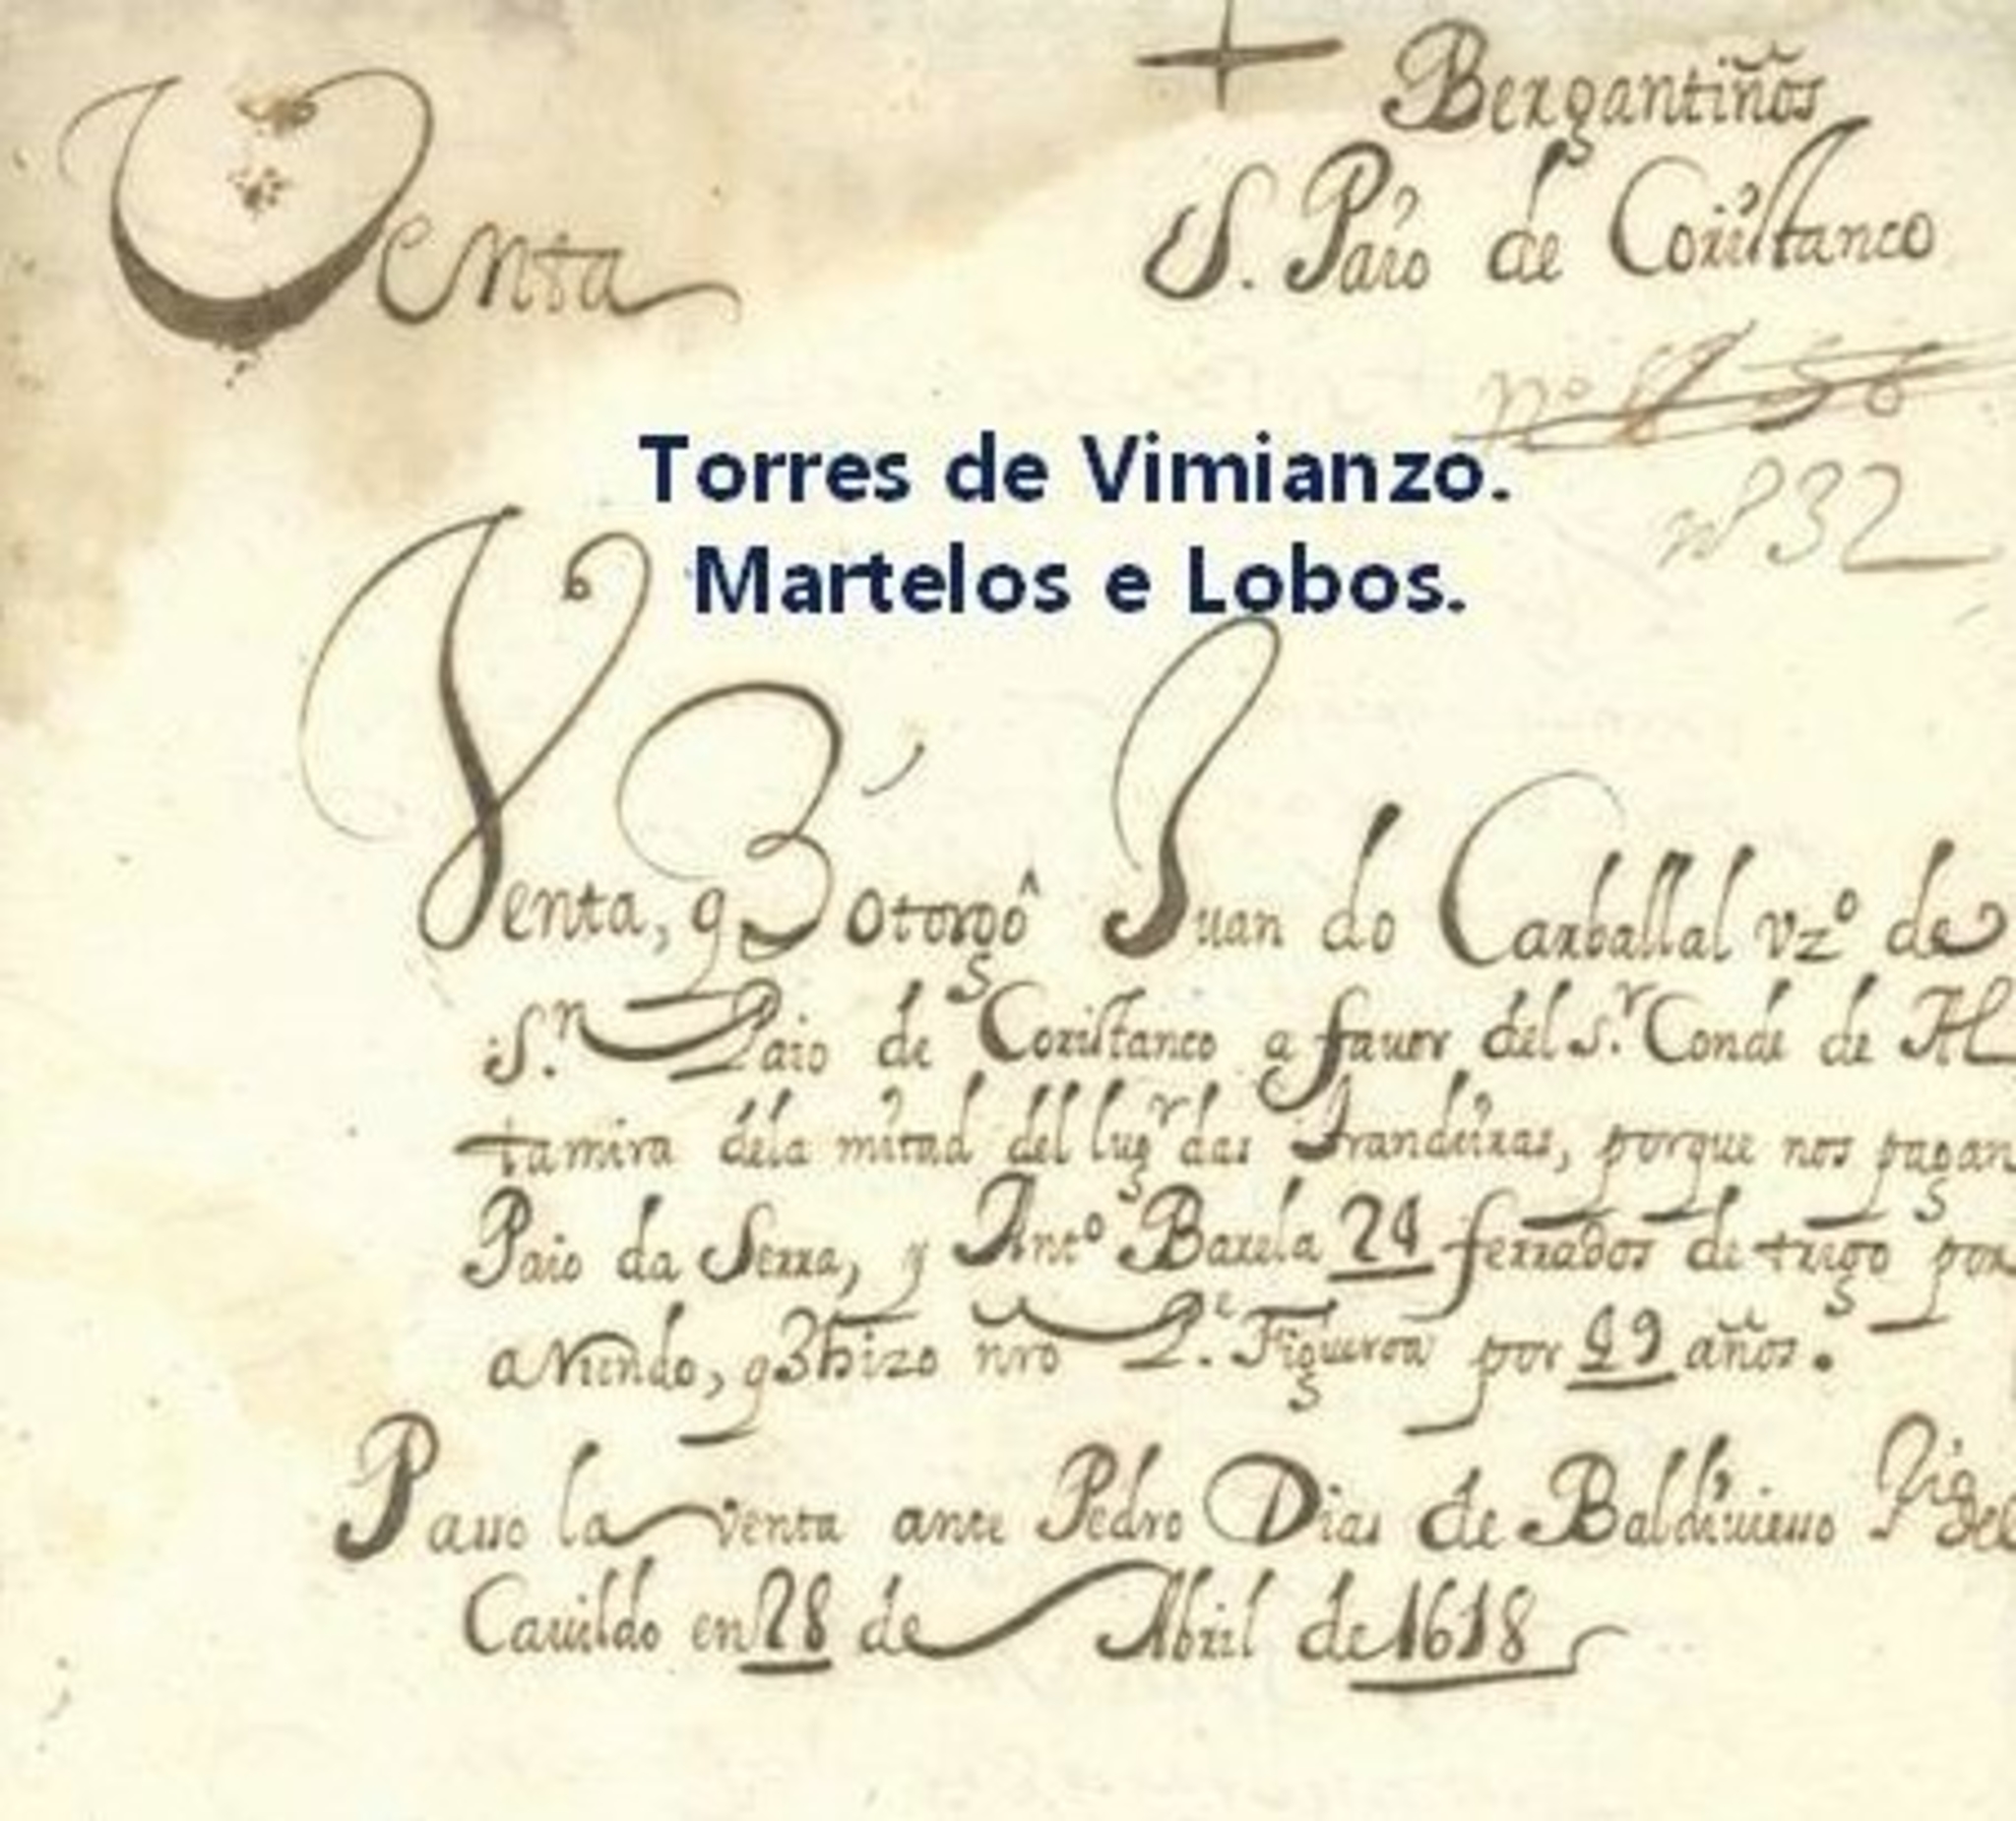 Venta
Bergantiños
S. Paio de Coristanco
nº 32
Torres de Vimianzo.
Martelos e Lobos.
Venta, q̃ otorgô Juan do Carballal vzº de
S.n Paio de Coristanco a fauor del s.r Conde de Al
tamira dela mitad del lugr das Brandeiras, porque nos pagan
Paio da Serra, y Antº Barela 24 ferrados de trigo por
aRiendo, q hizo nro P.e Figueroa por 99 años.
Passo la venta ante Pedro Dias de Baldiuiesso del
Cauildo en 28 de Abril de 1618